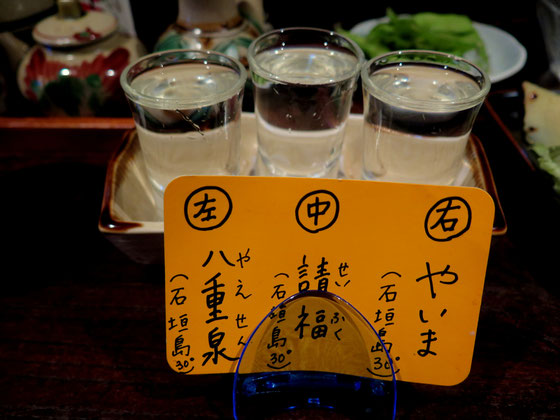 左
八重泉
やえせん
(石垣島30°)
中
請福
せいふく
(石垣島30°)
右
やいま
(石垣島30°)